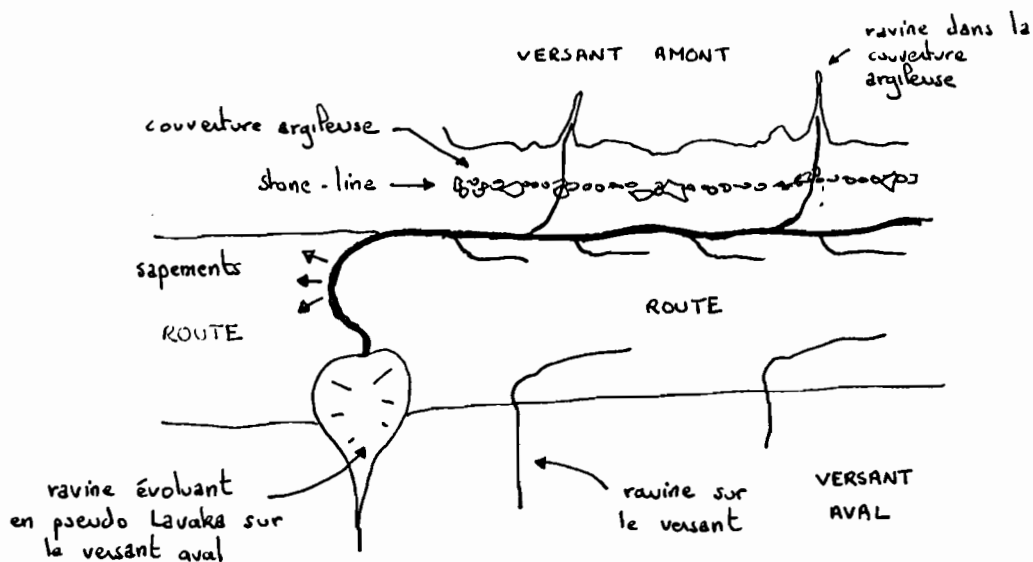 ravine dans la
couverture
argileuse
VERSANT AMONT
couverture argileuse
stone-line
sapements
ROUTE
ROUTE
ravine évoluant
en pseudo Lavaka sur
le versant aval
ravine sur
le versant
VERSANT
AVAL